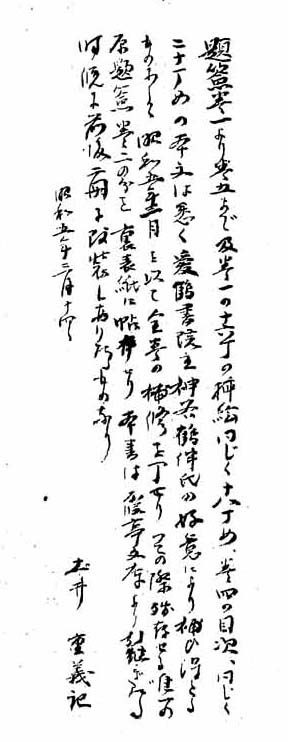 題簽巻一より巻五まで及巻一の十六丁の挿絵同じく十八丁め、巻四の目次、同じく
二十丁めの本文は悉く愛鶴書院主神谷鶴伴氏の好意により補ひ得たる
ものなり 昭和五年二月を以て全巻の補修を了せり その際残存せる唯一の
原題簽巻之二の分を裏表紙に帖付せり 本書は 文庫より 
時既に前後二冊に改装しありたるものなり
昭和五年二月十四日
土井 重義記